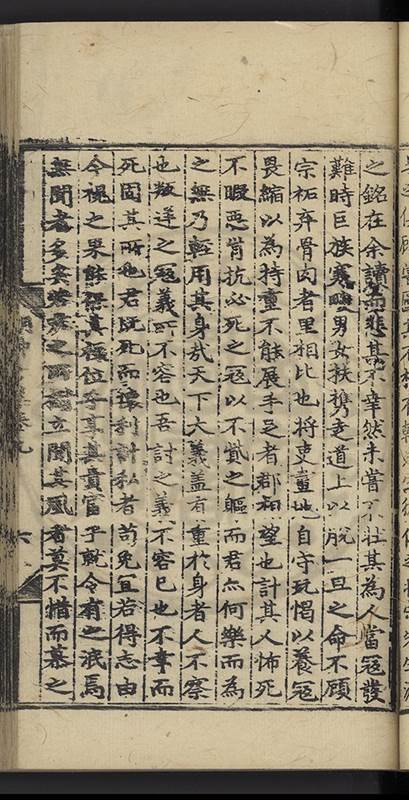 之銘在余讀而悲其不幸然未嘗不壯其為人當冦發
難時巨族寒畯男女扶携走道上以脫一旦之命不顧
宗祏弃骨肉者里相比也将吏畫地自守玩愒以養冦
畏縮以為持重不能展手足者郡相望也計其人怖死
不暇恶肯抗必死之冦以不貲之軀而君亦何樂而為
之無乃輕用其身㢤天下大義盖有重扵身者人不察
也叛逆之冦義所不容也吾討之義不容已也不幸而
死固其所也君既死而壞利計私者苟免冝若得志由
今視之果能㨿真極位乎享真貴富乎就令有之泯焉
無聞者多矣若君之所樹立聞其風者莫不惜而慕之
九
六